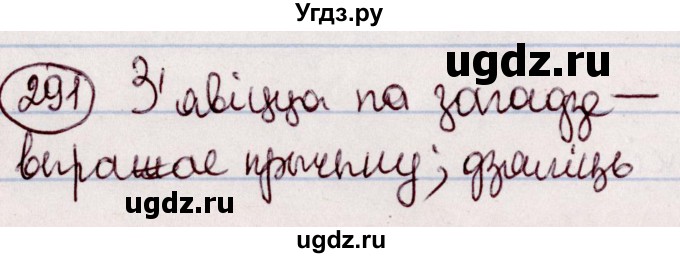 Угдз.ру
ugdz.ru
291 З'явіцца па загадзе —
выражае прычыну; дзяліць
ugdz.ru
ugdz.ru
ugdz.ru